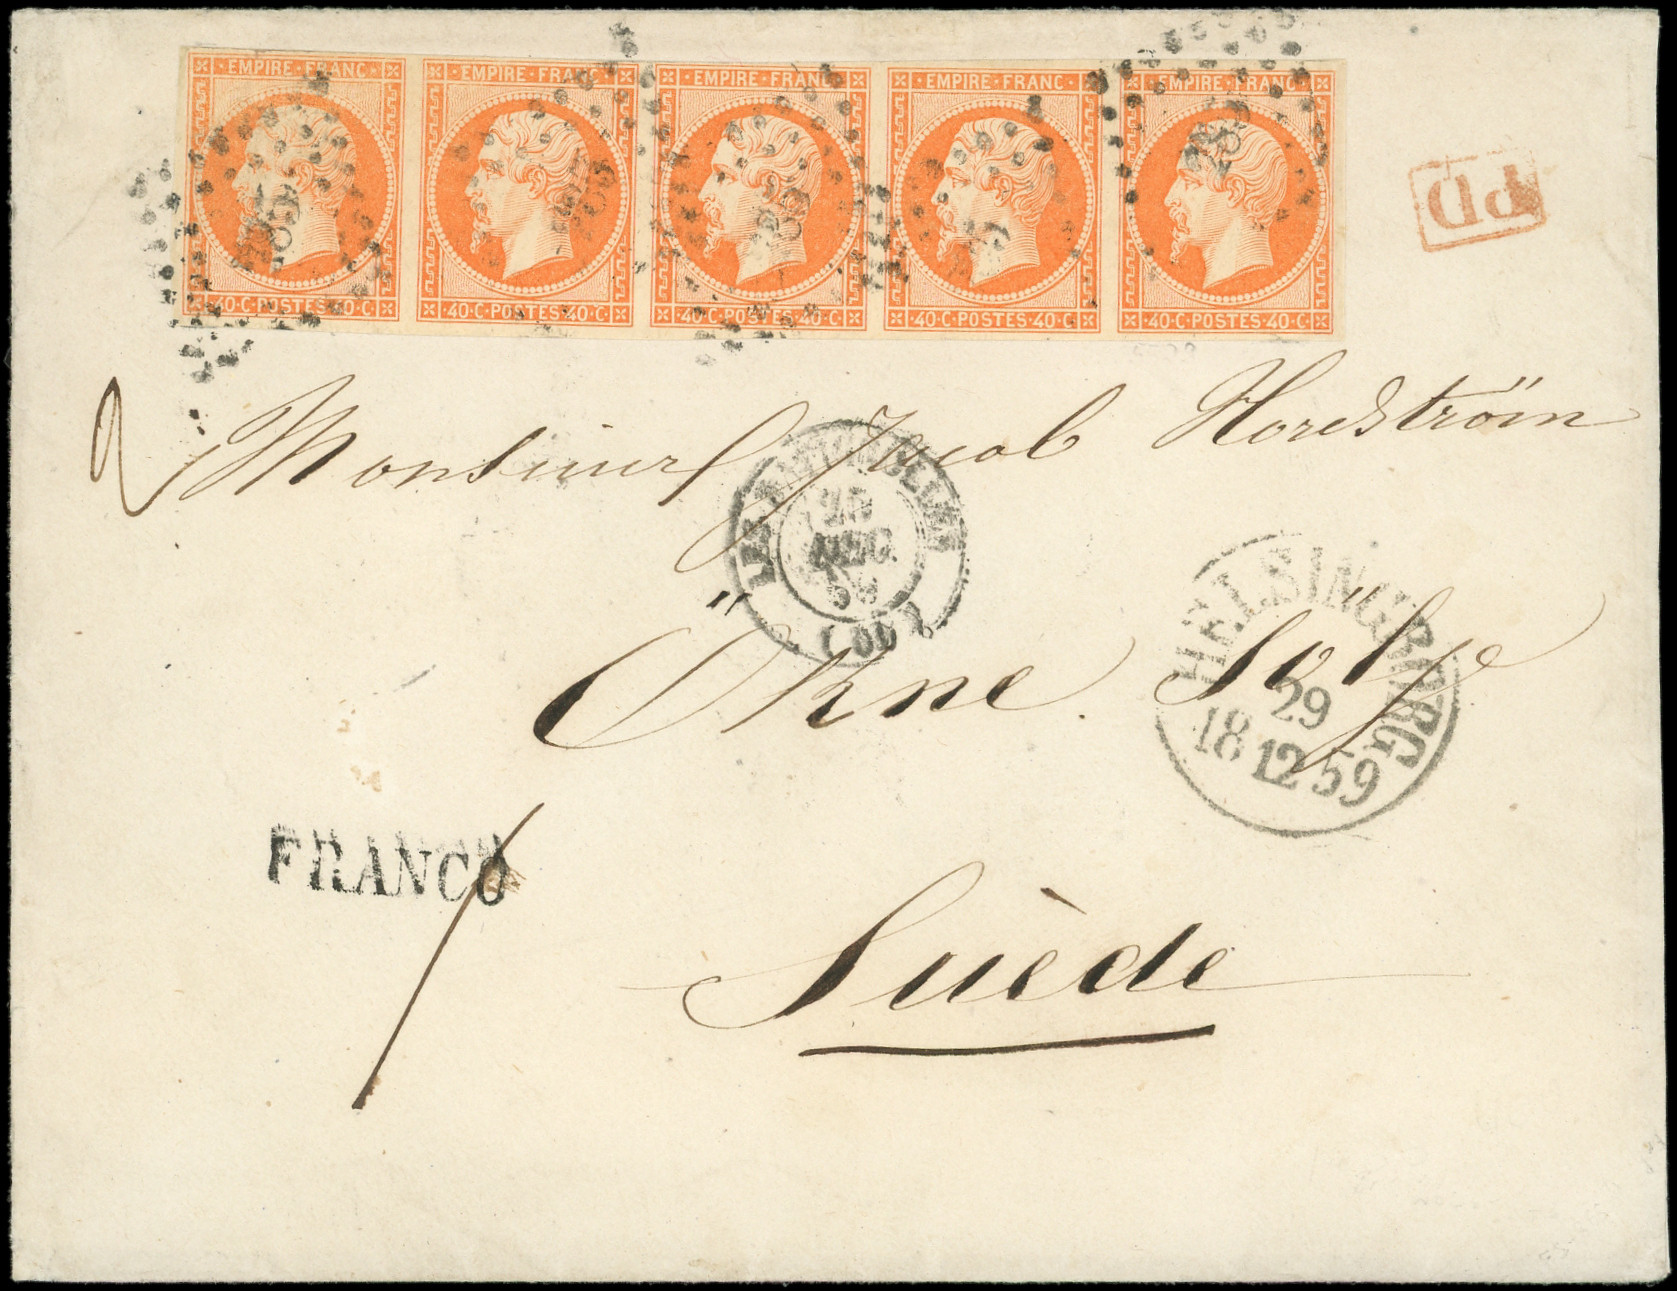 EMPIRE · FRANC · EMPIRE · FRANC · EMPIRE · FRANC · EMPIRE · FRANC · EMPIRE · FRANC
40·C·POSTES·40·C· 40·C·POSTES·40·C· 40·C·POSTES·40·C· 40·C·POSTES·40·C· 40·C·POSTES·40·C·
PD
Monsieur Jacob
LES BATIGNOLLES
25
DEC
(60)
Öhne
HELSINGBORG
29
18 12 59
FRANCO
Suède